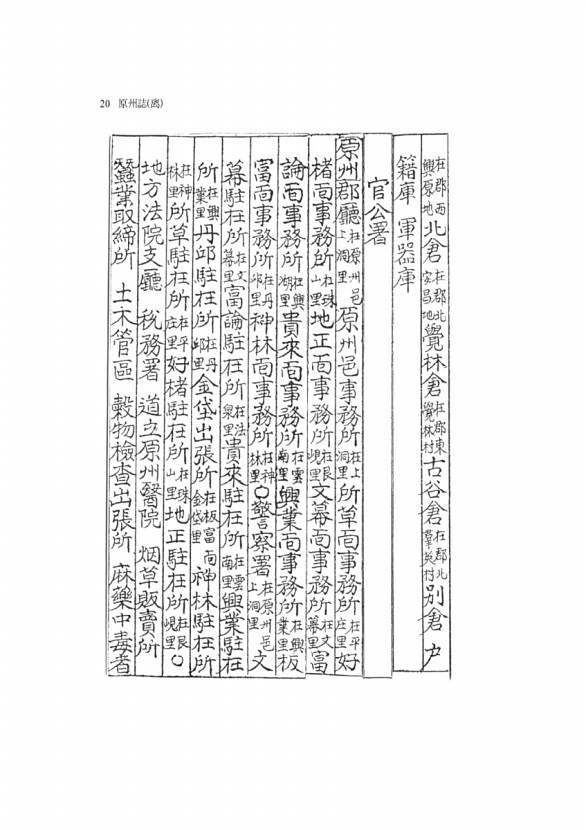 20 原州誌(禹)
在郡西興原地 北倉 在郡北安昌地 覺林倉 在郡東覺林村 古谷倉 在郡北羣英村 別倉 户
籍庫 軍器庫
官公署
原州郡廳 在原州邑上洞里 原州邑事務所 在上洞里 所草面事務所 在平庄里 好
楮面事務所 在珠山里 地正面事務所 在艮峴里 文幕面事務所 在文幕里 富
論面事務所 在興湖里 貴來面事務所 在雲南里 興業面事務所 在興業里 板
富面事務所 在丹邱里 神林面事務所 在神林里 〇警察署 在原州邑上洞里 文
幕駐在所 在文幕里 富論駐在所 在法泉里 貴來駐在所 在雲南里 興業駐在
所 在興業里 丹邱駐在所 在丹邱里 金垈出張所 在板富面金垈里 神林駐在所
在神林里 所草駐在所 在平庄里 好楮駐在所 在珠山里 地正駐在所 在艮峴里 〇
地方法院支廳 稅務署 道立原州醫院 烟草販賣所
蠶業取締所 土木管區 穀物檢查出張所 麻藥中毒者